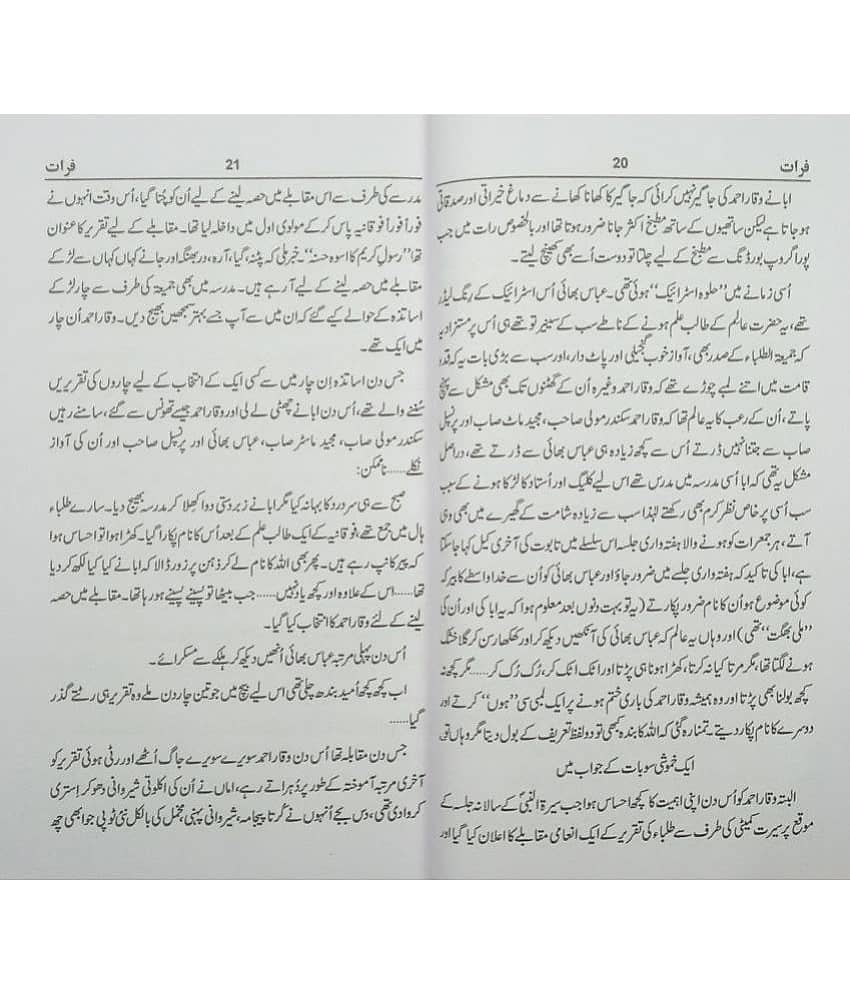 فرات 20
ابا نے وقار احمد کی جاگیر نہیں کرائی کہ جاگیر کا کھانا کھانے سے دماغ خیراتی اور صدقاتی
ہو جاتا ہے لیکن ساتھیوں کے ساتھ مطبخ اکثر جانا ضرور ہوتا تھا اور بالخصوص رات میں جب
پورا گروپ بورڈنگ سے مطبخ کے لیے چلتا تو دوست اُسے بھی کھینچ لیتے۔
اُسی زمانے میں ”حلوہ اسٹرائیک“ ہوئی تھی۔ عباس بھائی اُس اسٹرائیک کے رِنگ لیڈر
تھے، یہ حضرت عالم کے طالب علم ہونے کے ناطے سب کے سینیر تو تھے ہی اُس پر مستزاد یہ
کہ جمیعۃ الطلباء کے صدر بھی، آواز خوب گنجیلی اور پاٹ دار، اور سب سے بڑی بات یہ کہ قد و
قامت میں اتنے لمبے چوڑے تھے کہ وقار احمد وغیرہ اُن کے گھٹنوں تک بھی مشکل سے پہنچ
پاتے، اُن کے رعب کا یہ عالم تھا کہ وقار احمد سکندر مولی صاحب، مجید ماٹ صاب اور پرنسپل
صاب سے جتنا نہیں ڈرتے اُس سے کچھ زیادہ ہی عباس بھائی سے ڈرتے تھے، دراصل
مشکل یہ تھی کہ ابا اُسی مدرسہ میں مدرس تھے اس لیے کلیگ اور اُستاد کا لڑکا ہونے کے سبب
سب اُسی پر خاص نظر کرم بھی رکھتے لہٰذا سب سے زیادہ شامت کے گھیرے میں بھی وہی
آتے، ہر جمعرات کو ہونے والا ہفتہ واری جلسہ اس سلسلے میں تابوت کی آخری کیل کہا جا سکتا
ہے، ابا کی تاکید کہ ہفتہ واری جلسے میں ضرور جاؤ اور عباس بھائی کو اُن سے خدا واسطے کا بیر کہ
کوئی موضوع ہو اُن کا نام ضرور پکارتے (یہ تو بہت دنوں بعد معلوم ہوا کہ یہ ابا کی اور اُن کی
”ملی بھگت“ تھی) اور وہاں یہ عالم کہ عباس بھائی کی آنکھیں دیکھ کر اور کھکھار سن کر گلا خشک
ہونے لگتا تھا، مگر مرتا کیا نہ کرتا، کھڑا ہونا ہی پڑتا اور اٹک اٹک کر، رُک رُک کر...... مگر کچھ نہ
کچھ بولنا بھی پڑتا اور وہ ہمیشہ وقار احمد کی باری ختم ہونے پر ایک لمبی سی ”ہوں“ کرتے اور
دوسرے کا نام پکار دیتے۔ تمنا رہ گئی کہ اللہ کا بندہ کبھی تو دو لفظ تعریف کے بول دیتا مگر وہاں تو
ایک خموشی سو بات کے جواب میں
البتہ وقار احمد کو اُس دن اپنی اہمیت کا کچھ احساس ہوا جب سیرۃ النبیؐ کے سالانہ جلسہ کے
موقع پر سیرت کمیٹی کی طرف سے طلباء کی تقریر کے ایک انعامی مقابلے کا اعلان کیا گیا اور
21 فرات
مدرسے کی طرف سے اس مقابلے میں حصہ لینے کے لیے اُن کو چُنا گیا، اُس وقت انہوں نے
فوراً فوراً فوقانیہ پاس کر کے مولوی اول میں داخلہ لیا تھا۔ مقابلے کے لیے تقریر کا عنوان
تھا ”رسول کریم کا اسوہ حسنہ“۔ خبر ملی کہ پٹنہ، گیا، آرہ، دربھنگہ اور جانے کہاں کہاں سے لڑکے
مقابلے میں حصہ لینے کے لیے آ رہے ہیں۔ مدرسہ میں بھی جمیعۃ کی طرف سے چار لڑکے
اساتذہ کے حوالے کیے گئے کہ ان میں سے آپ جسے بہتر سمجھیں بھیج دیں۔ وقار احمد اُن چار
میں ایک تھے۔
جس دن اساتذہ اِن چار میں سے کسی ایک کے انتخاب کے لیے چاروں کی تقریریں
سُننے والے تھے، اُس دن ابا نے چھٹی لے لی اور وقار احمد جیسے تھونس سے گئے، سامنے رہیں
سکندر مولی صاب، مجید ماسٹر صاب، عباس بھائی اور پرنسپل صاحب اور اُن کی آواز
نکلے...... ناممکن:
صبح سے ہی سر درد کا بہانہ کیا مگر ابا نے زبردستی دوا کھلا کر مدرسہ بھیج دیا۔ سارے طلباء
ہال میں جمع تھے، فوقانیہ کے ایک طالب علم کے بعد اُس کا نام پکارا گیا۔ کھڑا ہوا تو احساس ہوا
کہ پیر کانپ رہے ہیں۔ پھر بھی اللہ کا نام لے کر ذہن پر زور ڈالا کہ ابا نے کیا کیا لکھ کر دیا
تھا...... اس کے علاوہ اور کچھ یاد نہیں...... جب بیٹھا تو پسینے پسینے ہو رہا تھا۔ مقابلے میں حصہ
لینے کے لئے وقار احمد کا انتخاب کیا گیا۔
اُس دن پہلی مرتبہ عباس بھائی اُنھیں دیکھ کر ہلکے سے مسکرائے۔
اب کچھ کچھ اُمید بندھ چلی تھی اس لیے بیچ میں جو تین چار دن ملے وہ تقریر ہی رٹتے گذر
گیا......
جس دن مقابلہ تھا اُس دن وقار احمد سویرے سویرے جاگ اُٹھے اور رٹی ہوئی تقریر کو
آخری مرتبہ آموختہ کے طور پر دُہراتے رہے، اماں نے اُن کی اکلوتی شیروانی دھو کر اِستری
کروا دی تھی، دس بجے اُنہوں نے کُرتا پیجامہ، شیروانی پہنی، مخمل کی بالکل نئی ٹوپی جو ابھی چھ